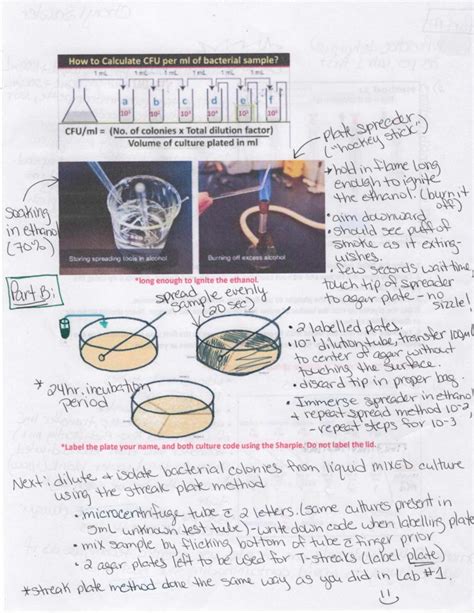 How to Calculate CFU per ml of bacterial sample?
1 mL 1 mL 1 mL 1 mL 1 mL 1 mL
a b c d e f
CFU/ml = (No. of colonies x Total dilution factor)
Volume of culture plated in ml
plate spreader.
("hockey stick")
hold in flame long
enough to ignite
the ethanol. (burn it
off)
• aim downward
• should see puff of
smoke as it exting-
uishes.
• few seconds wait time,
touch tip of spreader
to agar plate - no
sizzle!
soaking
in ethanol
(70%)
Storing spreading tools in alcohol
Burning off excess alcohol
*long enough to ignite the ethanol.
Part B:
spread
sample evenly
(20 sec)
• 2 labelled plates.
• 10-1 dilution tube, transfer 100µl
to center of agar without
touching the surface.
• discard tip in proper bag.
• Immerse spreader in ethanol
& repeat spread method 10-2
- repeat steps for 10-3
* 24hr. incubation
period
*Label the plate your name, and both culture code using the Sharpie. Do not label the lid.
Next: dilute & isolate bacterial colonies from liquid MIXED culture
using the streak plate method
• microcentrifuge tube c̄ 2 letters. (same cultures present in
5mL unknown test tube) - write down code when labelling plate
• mix sample by flicking bottom of tube c̄ finger prior
• 2 agar plates left to be used for T-streaks (label plate)
*streak plate method done the same way as you did in Lab #1.